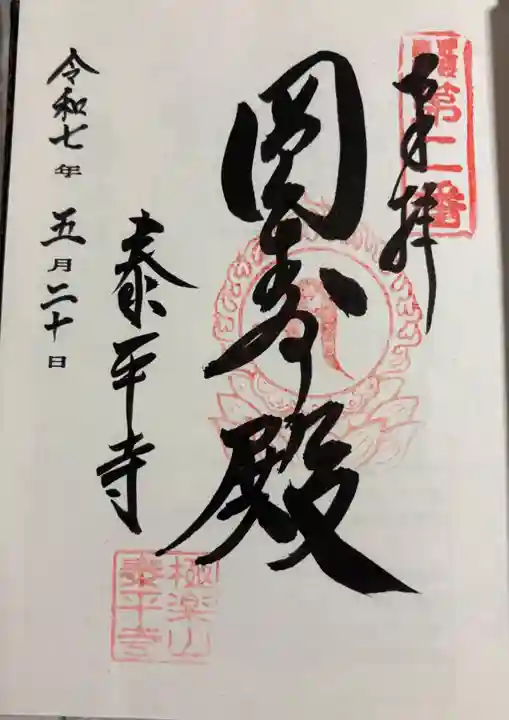 奉拝
第二番
圓寿殿
泰平寺
令和七年 五月二十日
極楽山
泰平寺